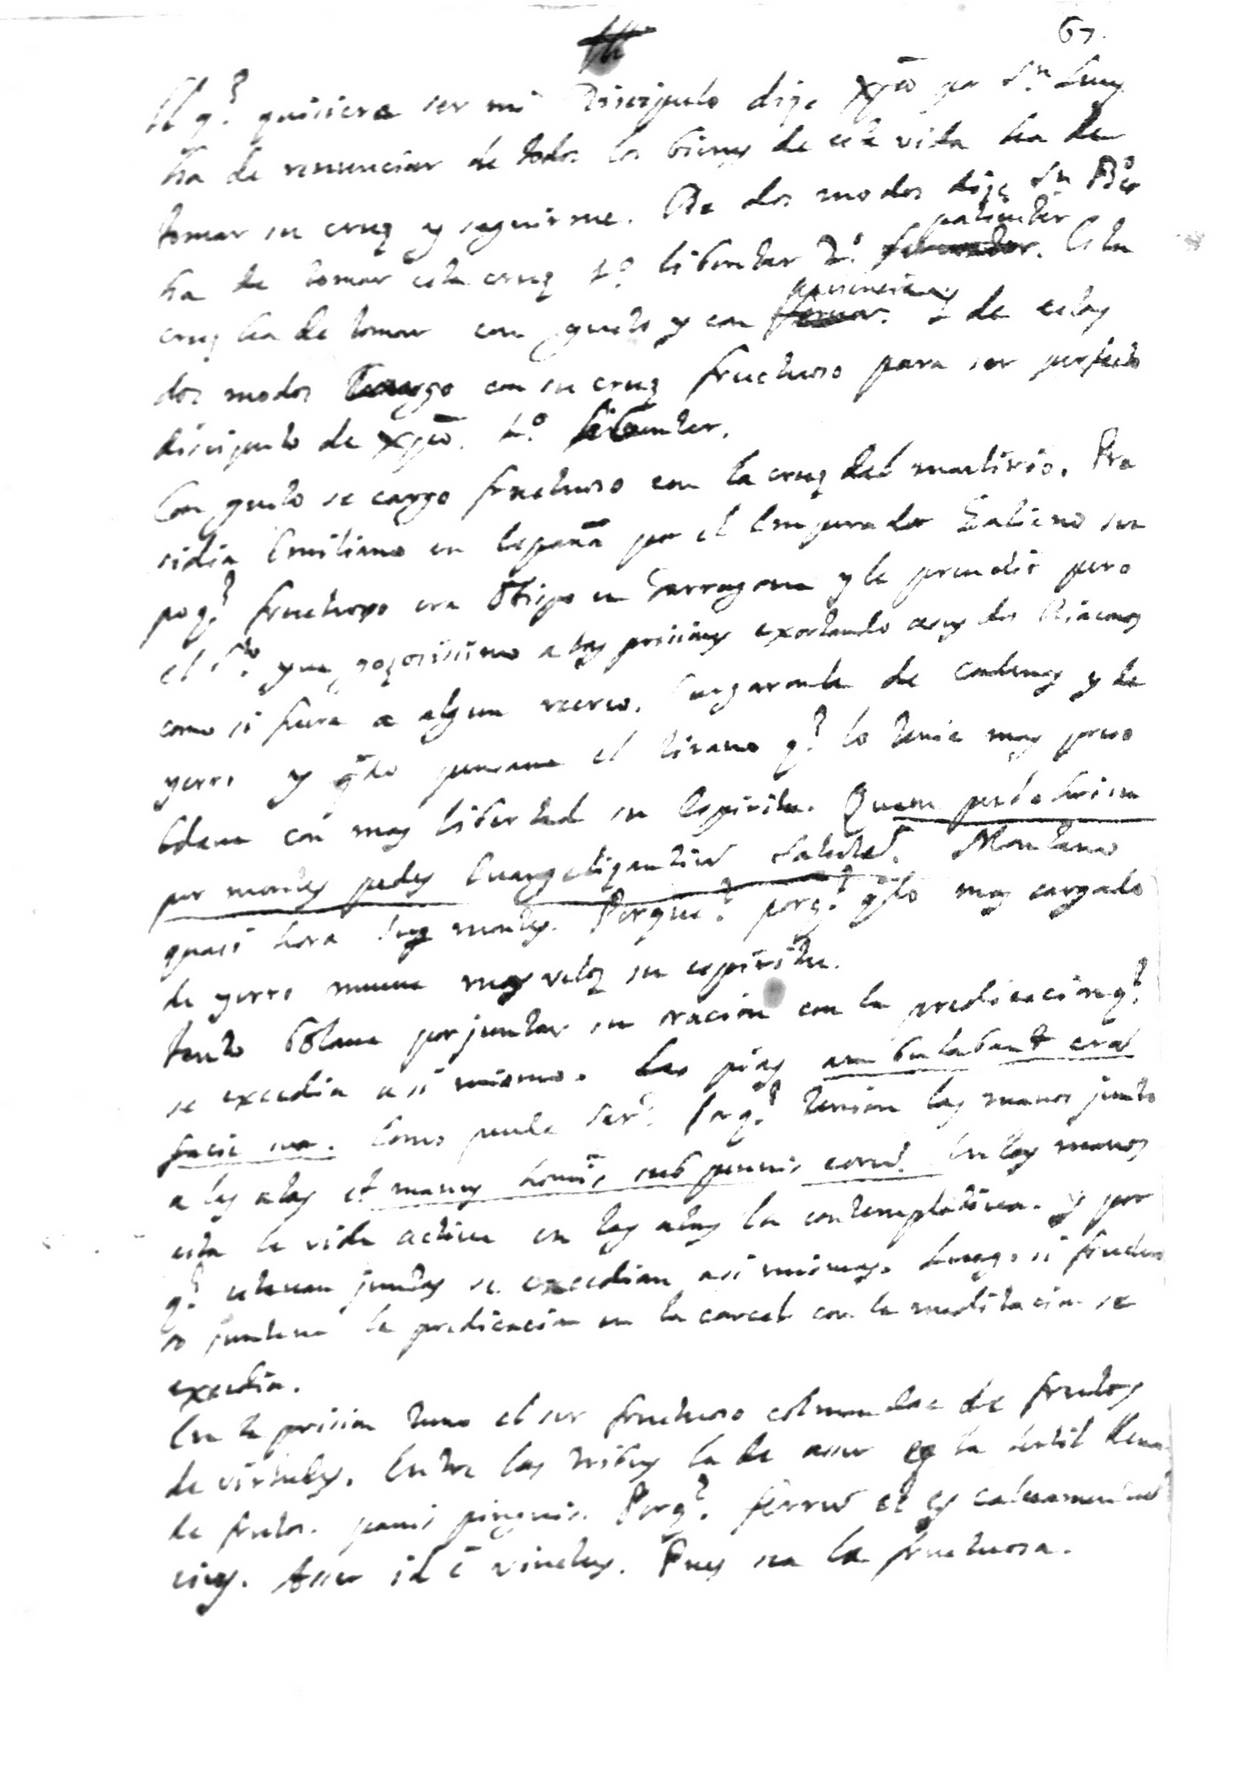 67.
El q.e quisiera ser mi Discipulo dize Xpō por Sn. Lucas
ha de renunciar de todos los bienes de esta vida ha de
tomar su cruz y seguirme. De dos modos dize Sn.
ha de tomar esta cruz 1.o libenter 2.o patienter. Esta
cruz ha de tomar con gusto y con paciencia. Y de estos
dos modos cargo con su cruz fructuoso para ser perfecto
discipulo de Xpō. 1.o libenter.
Con gusto se cargo fructuoso con la cruz del martirio. Pre
sidia Emiliano en España por el Emperador Galieno su
po q.e fructuoso era Obispo en Tarragona y le prendio pero
el S.to yua gozosissimo a las prisiones exortando a sus dos Diaconos
como si fuera a algun recreo. Cargaronle de cadenas y de
yerro y q.do pensaua el tirano q.e lo tenia mas preso
con mas libertad su espiritu. Quam pulchri sunt
per montes pedes Euangelizantium salutem. Montano
quasi hora montes. Porque? porq.e q.do mas cargado
de yerro mueue mas veloz su espiritu.
tanto por juntar su oracion con la predicacion q.e
se excedia a si mismo. Las pias ambulabant coram
facie sua. Como puede ser? Porq.e tenian las manos junto
a las alas et manus hominis sub pennis eorum. En las manos
esta la vida actiua en las alas la contemplatiua. y por
q.e estauan juntas se excedian a si mismas. Luego si fructuo
so juntaua la predicacion en la carcel con la meditacion se
excedia.
En la prision tuuo el ser fructuoso colmandose de frutos
de virtudes. Entre las tribus la de asser es la fertil llena
de frutos. panis pinguis. Porq.e ferrum et es calceamentum
eius. Asser id ē vinctus. Pues sea la fructuosa.